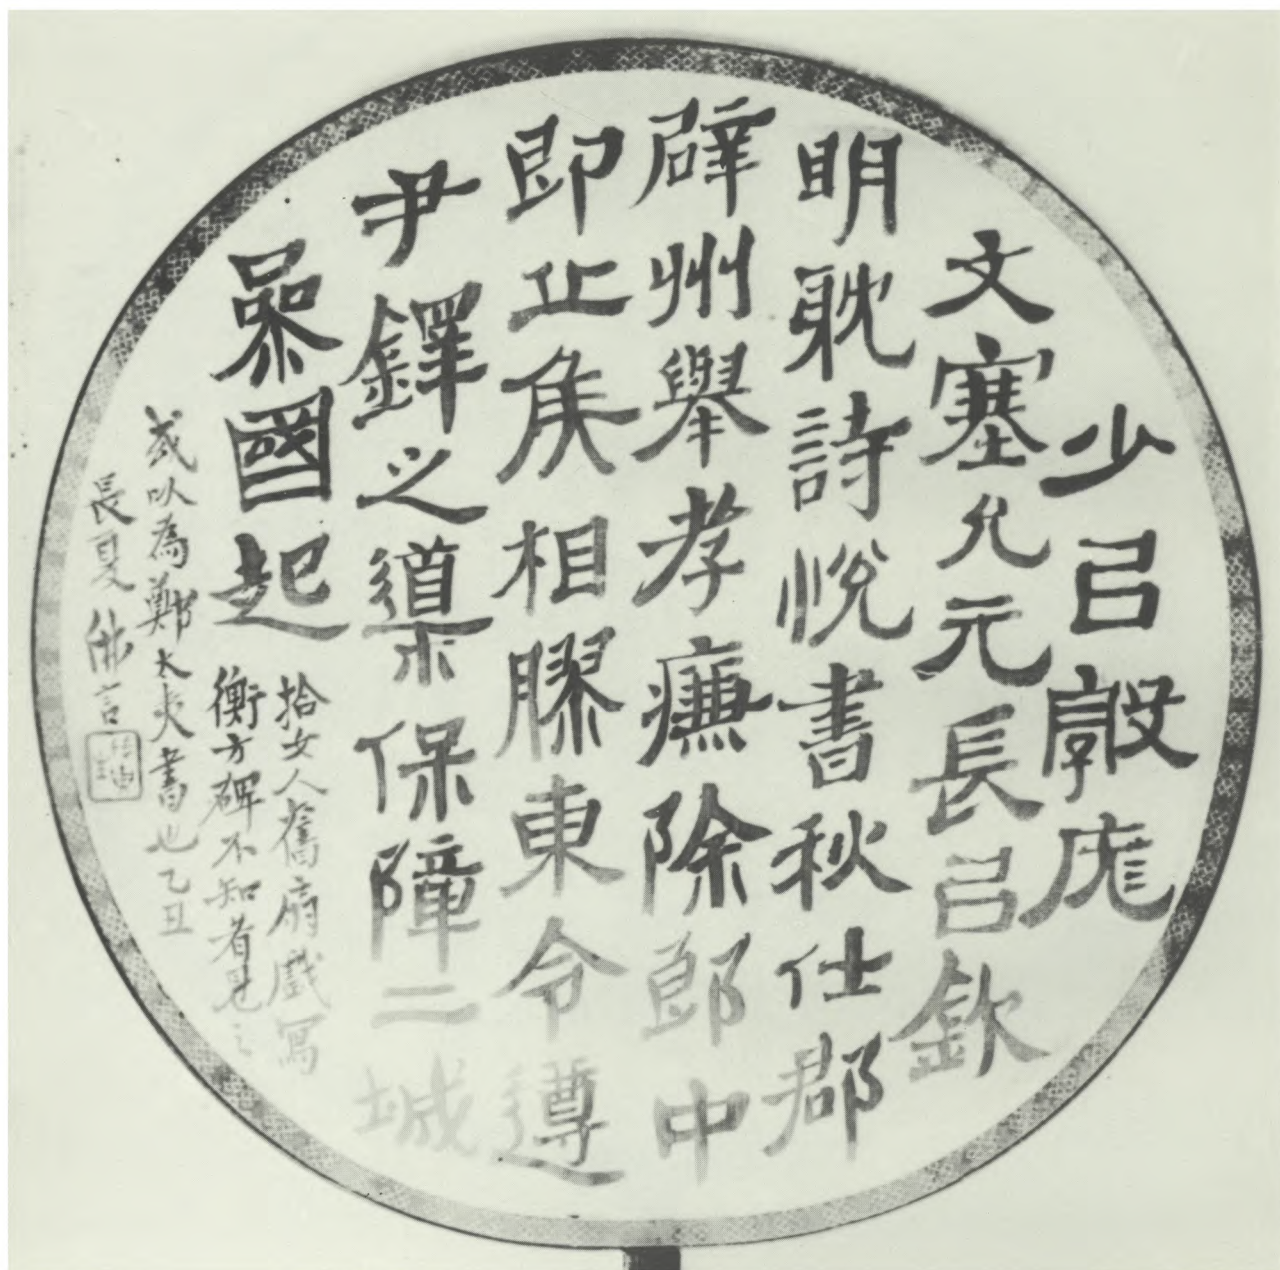 少㠯敦庬
文塞允元長㠯欽
明耽詩悅書秋仕郡
辟州舉孝廉除郎中
即丘侯相膠東令遵
尹鐸之導保障二城
參國起
拾女人舊扇戲寫
衡方碑不知者見之
或以為鄭太夷書也乙丑
長夏佛言